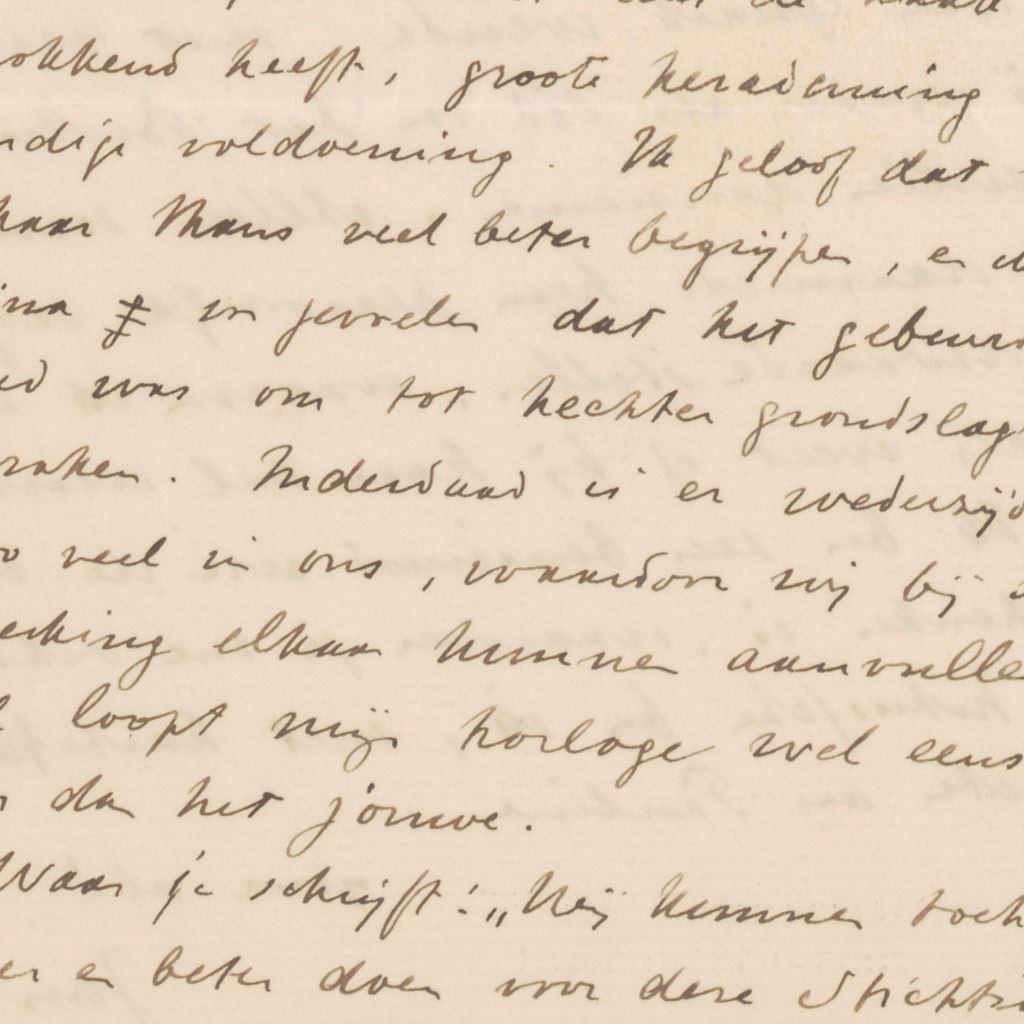 okkend heeft, groote herademing
ndige voldoening. Ik geloof dat
kaar thans veel beter begrijpen, en
gevoelen dat het gebeur
was om tot hechter grondslag
raken. Inderdaad is er wederzijd
veel in ons, waardoor wij bij
erking elkaar kunnen aanvulle
loopt mijn horloge wel eens
dan het jouwe.
Waar je schrijft: „Wij kunnen toch
er en beter doen voor deze Sticht